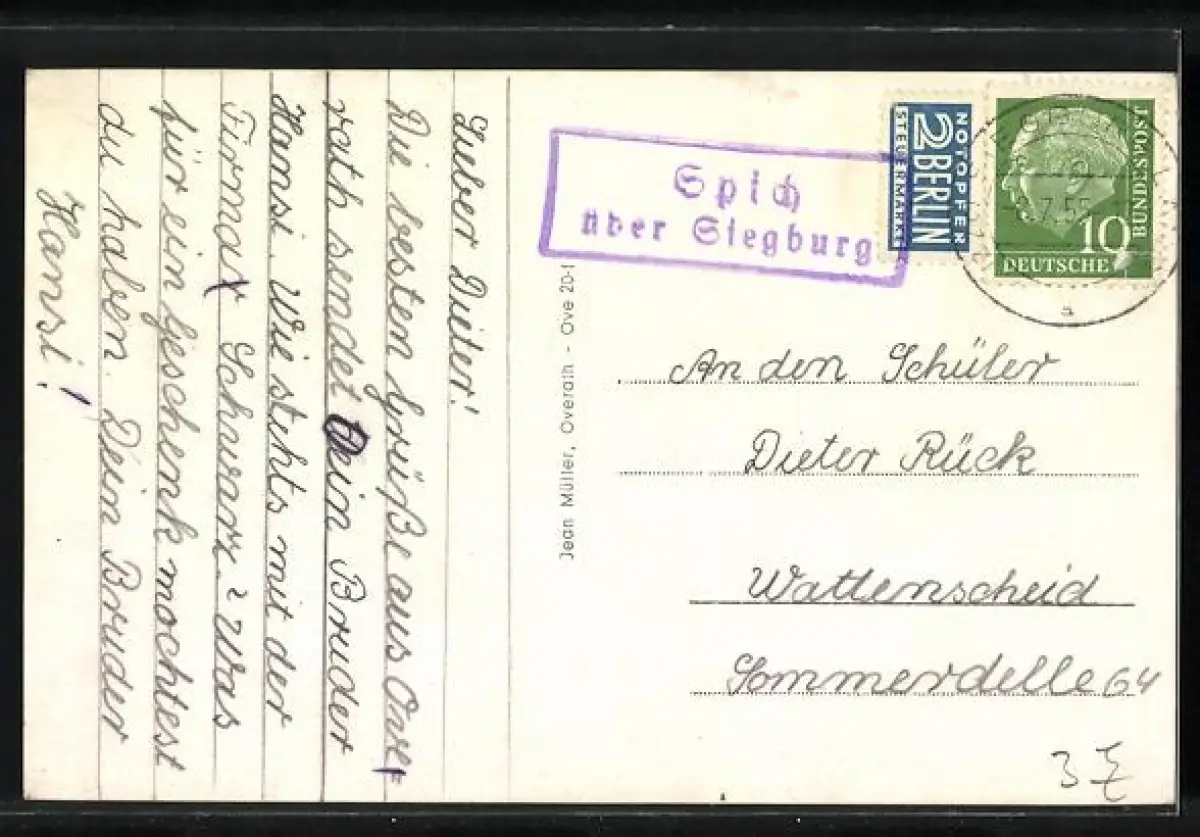 Lieber Dieter!
Die besten Grüße aus Over
rath sendet Dein Bruder
Hansi. Wie stehts mit der
Firma Schwarz? Was
für ein Geschenk mochtest
du haben. Dein Bruder
Hansi!
Jean Müller, Overath - Ove 20-1
Spich
über Siegburg
NOTOPFER
2 BERLIN
STEUERMARKE
10
DEUTSCHE
BUNDESPOST
7.55
a
An den Schüler
Dieter Rück
Wattenscheid
Sommerdelle 64
3